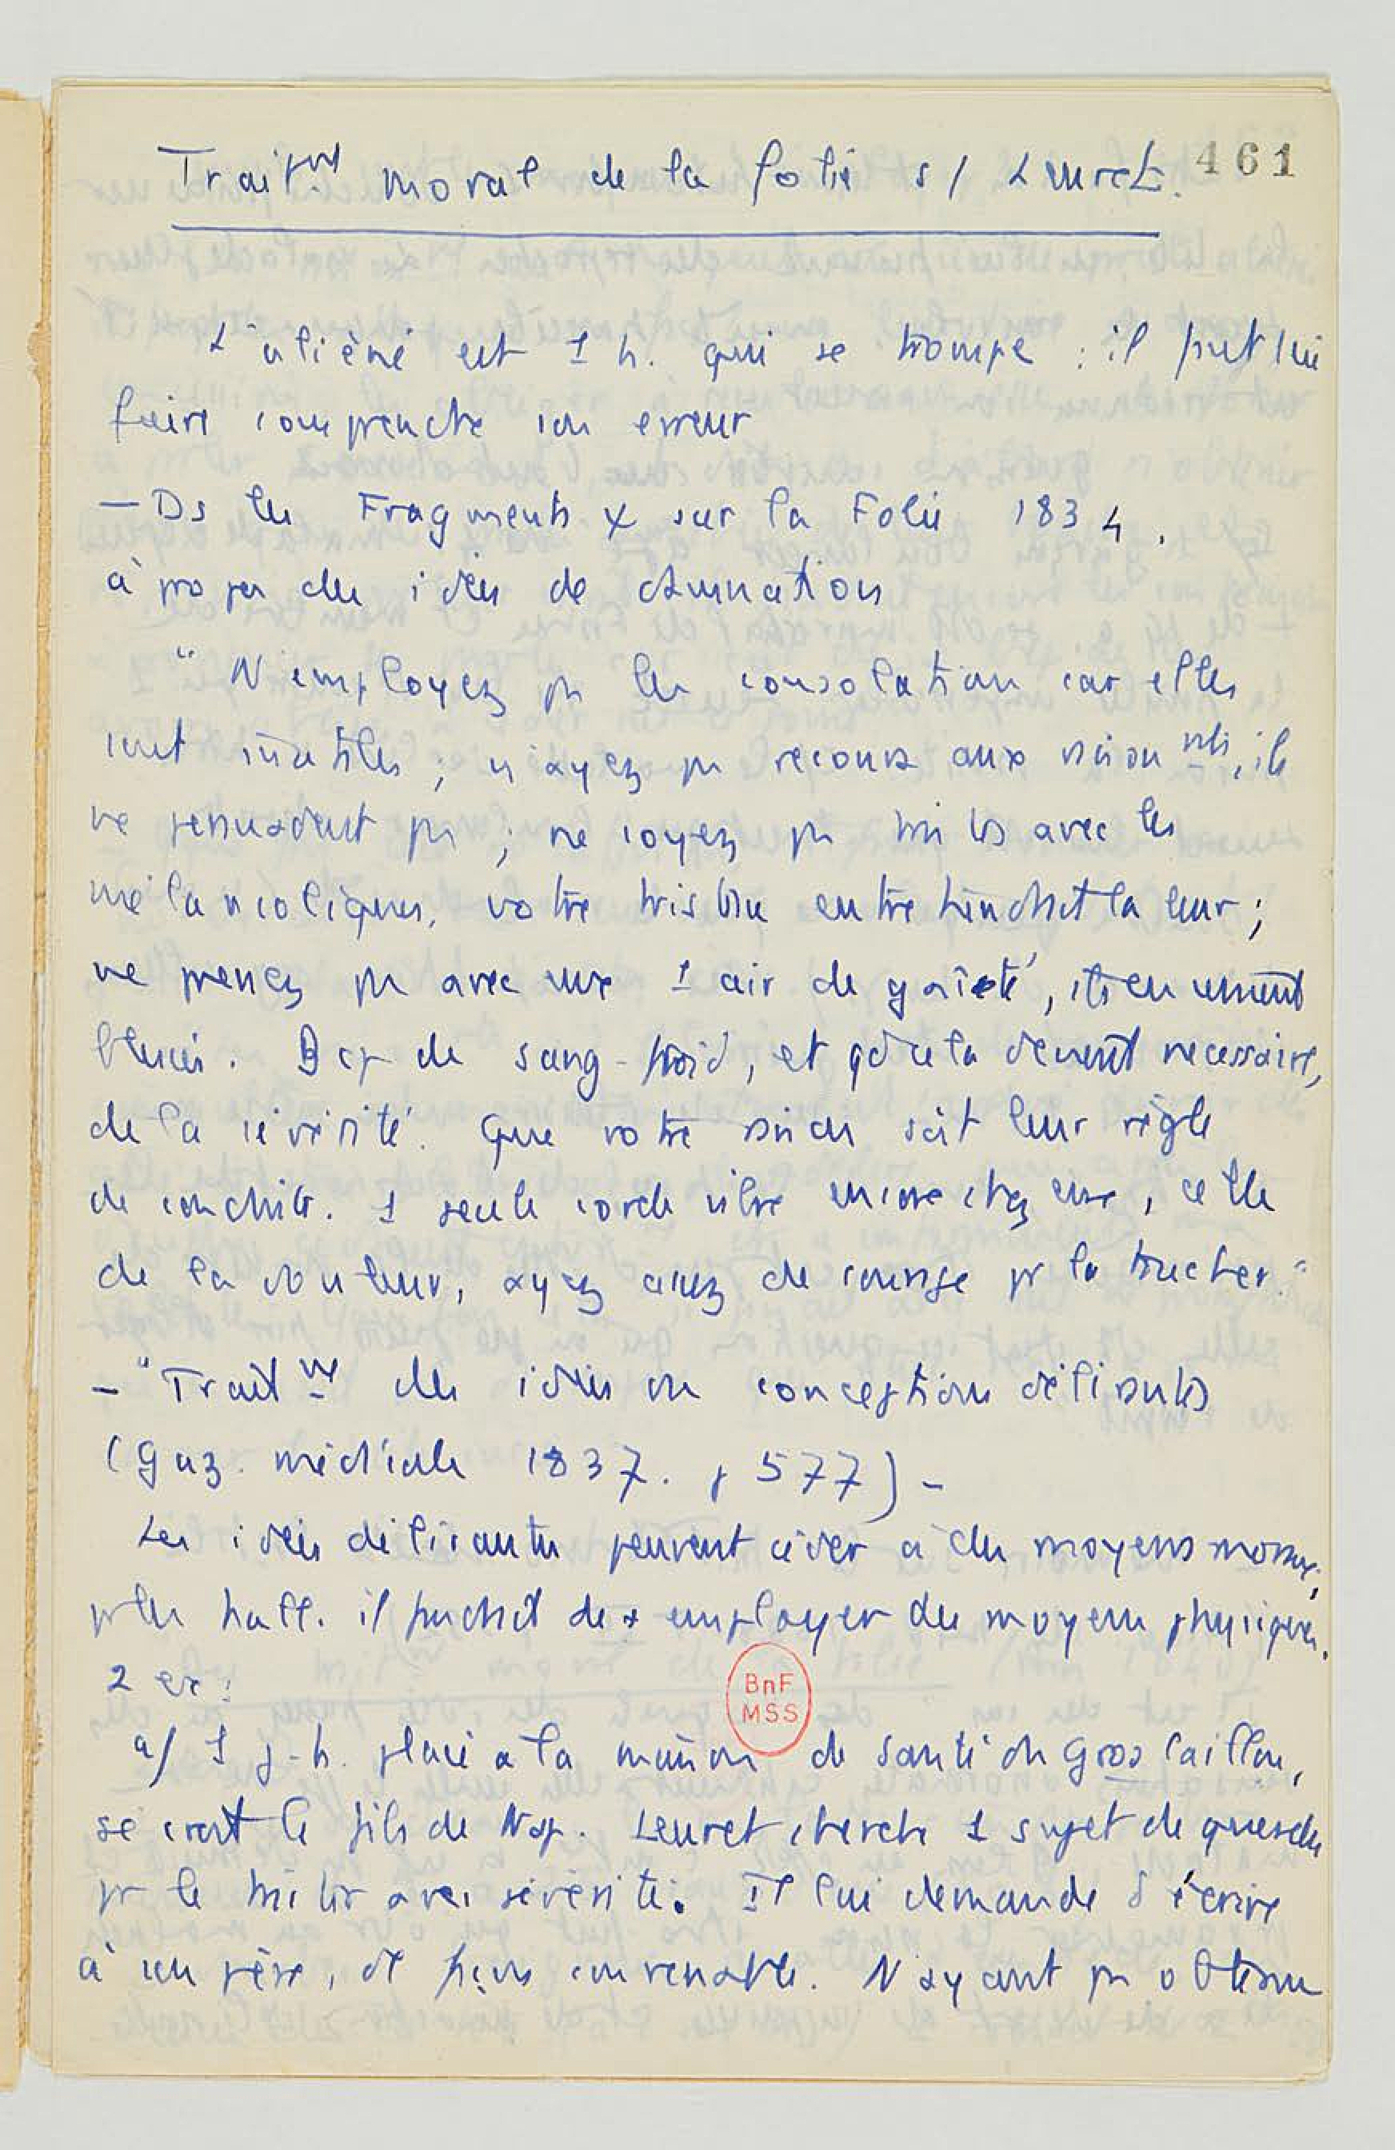 Traitmt moral de la folie s/ Leuret.
461
L'aliéné est 1 h. qui se trompe : il faut lui
faire comprendre son erreur
— Ds les Fragments x sur la Folie 1834,
à propos des idées de damnation
"N'employez pas les consolations car elles
sont inutiles ; n'ayez pas recours aux raisonnmts, ils
ne persuadent pas ; ne soyez pas tristes avec les
mélancoliques, votre tristesse entretiendrait la leur ;
ne prenez pas avec eux 1 air de gaieté, ils en seraient
blessés. Bcp de sang-froid, et qd cela devient necessaire,
de la sévérité. Que votre raison soit leur règle
de conduite. 1 seule corde vibre encore chez eux, celle
de la douleur, ayez assez de courage pr la toucher."
— "Traitmt des idées ou conceptions délirantes
(Gaz. médicale 1837. p 577) –
Les idées délirantes peuvent céder à des moyens moraux;
pr les hall. il faudrait de x employer des moyens physiques.
2 ex :
BnF
MSS
a/ 1 j-h. placé a la maison de santé du Gros Caillou,
se croit le fils de Nap. Leuret cherche 1 sujet de querelle
pr le traiter avec sévérité. Il lui demande d'écrire
à son père, de façon convenable. N'ayant pas obtenu